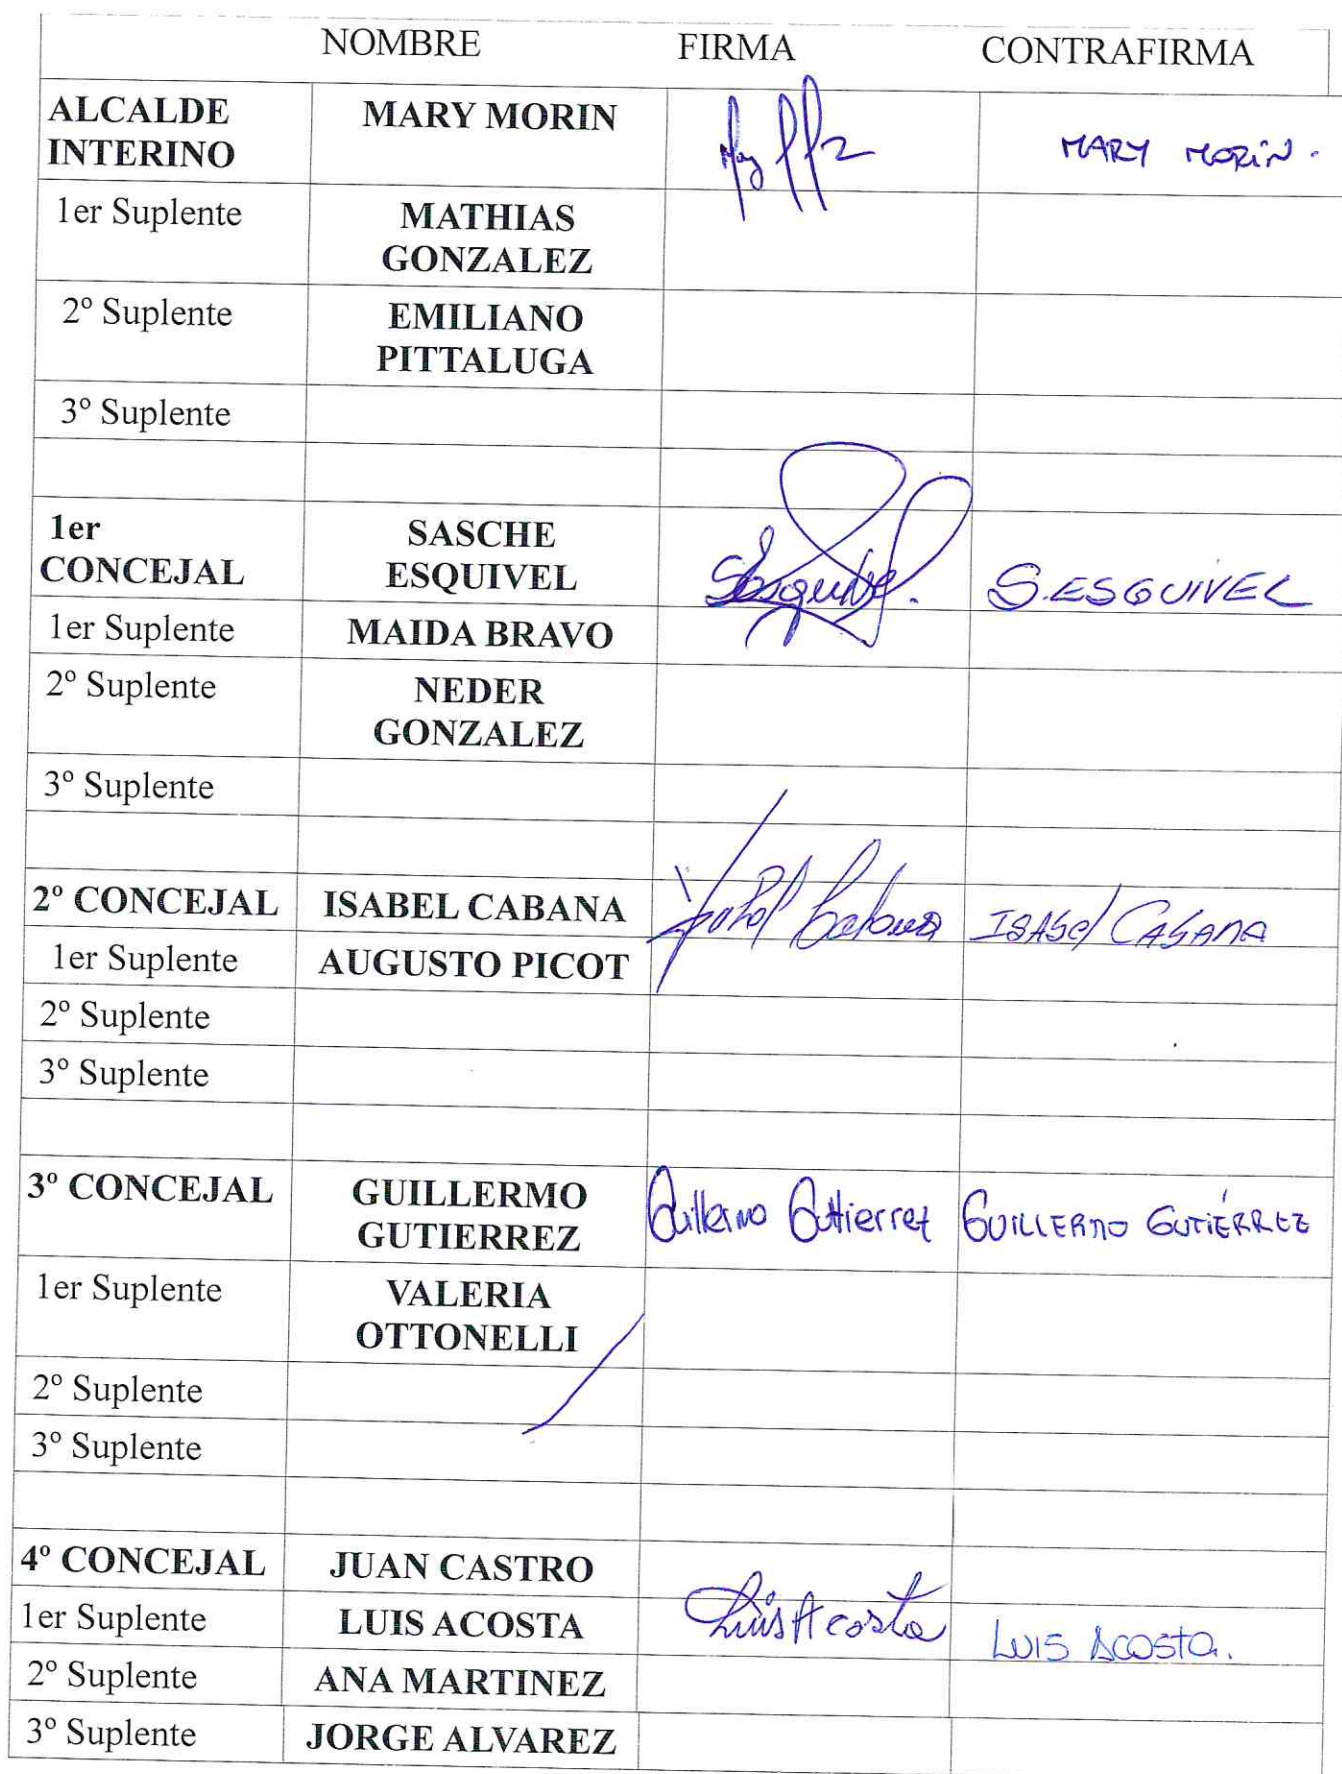 NOMBRE FIRMA CONTRAFIRMA
ALCALDE MARY MORIN
INTERINO MARY MORIN.
1er Suplente MATHIAS
GONZALEZ
2º Suplente EMILIANO
PITTALUGA
3º Suplente
1er SASCHE
CONCEJAL ESQUIVEL SEsquivel. S.ESQUIVEL
1er Suplente MAIDA BRAVO
2º Suplente NEDER
GONZALEZ
3º Suplente
2º CONCEJAL ISABEL CABANA Isabel Cabana ISABel CABANA
1er Suplente AUGUSTO PICOT
2º Suplente
3º Suplente
3º CONCEJAL GUILLERMO
GUTIERREZ Guillermo Gutierrez GUILLERMO GUTIÉRREZ
1er Suplente VALERIA
OTTONELLI
2º Suplente
3º Suplente
4º CONCEJAL JUAN CASTRO
1er Suplente LUIS ACOSTA Luis Acosta LUIS ACOSTA.
2º Suplente ANA MARTINEZ
3º Suplente JORGE ALVAREZ